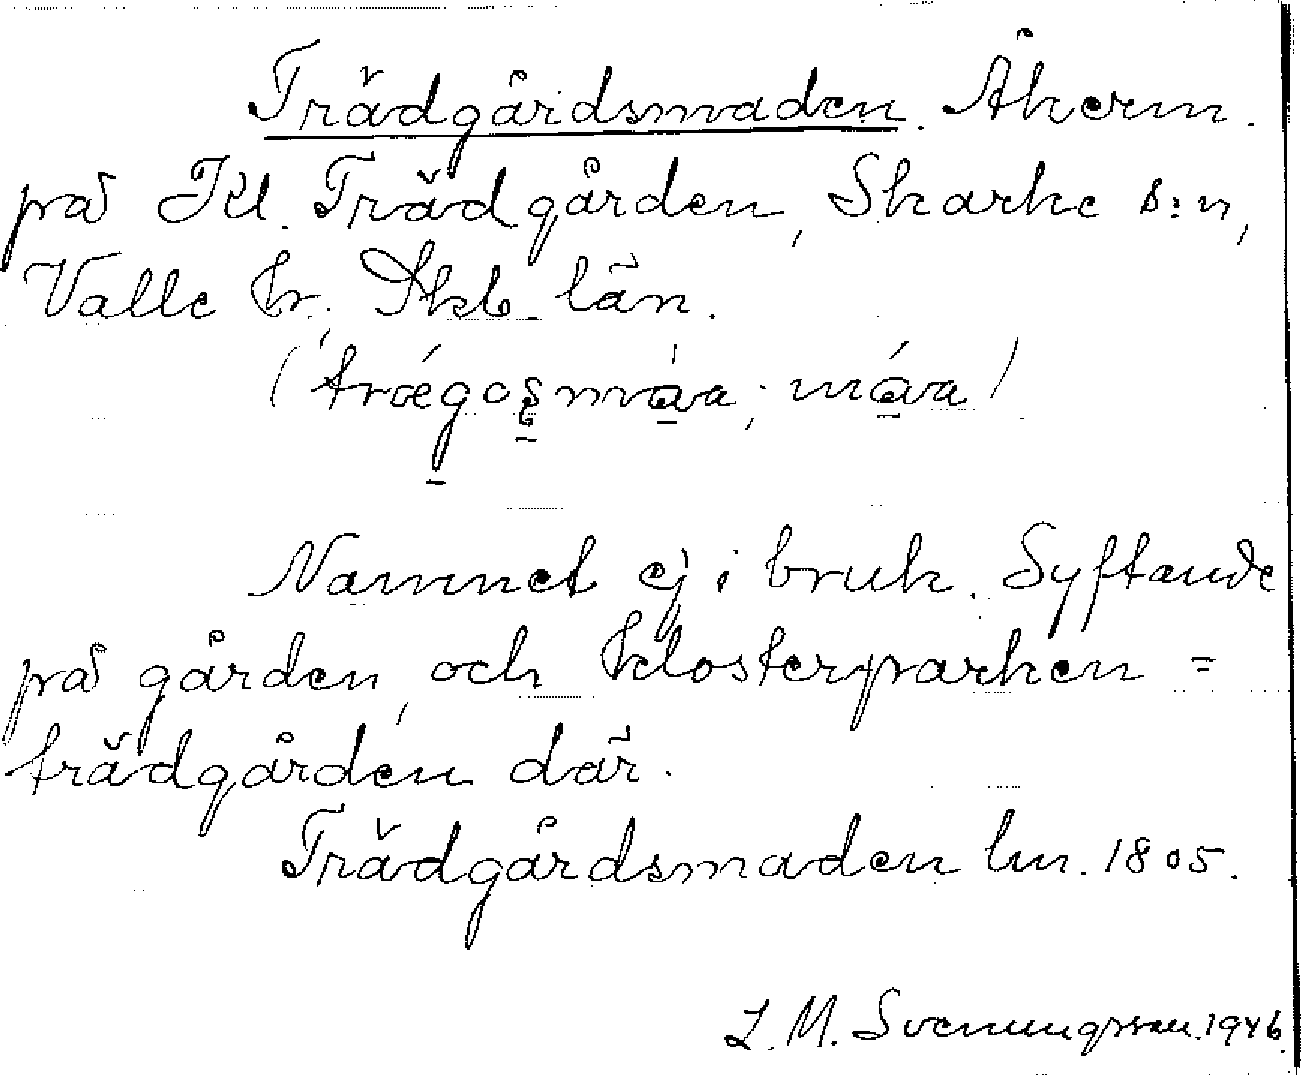 Trädgårdsmaden. Åkerm.
på Kl. Trädgården, Skarke s:n,
Valle hr., Skb. län.
(trægos̱ mava; máva)
Namnet ej i bruk. Syftande
på gården, och klosterparken =
trädgården där.
Trädgårdsmaden lm. 1805.
L. M. Svenungsson. 1946.